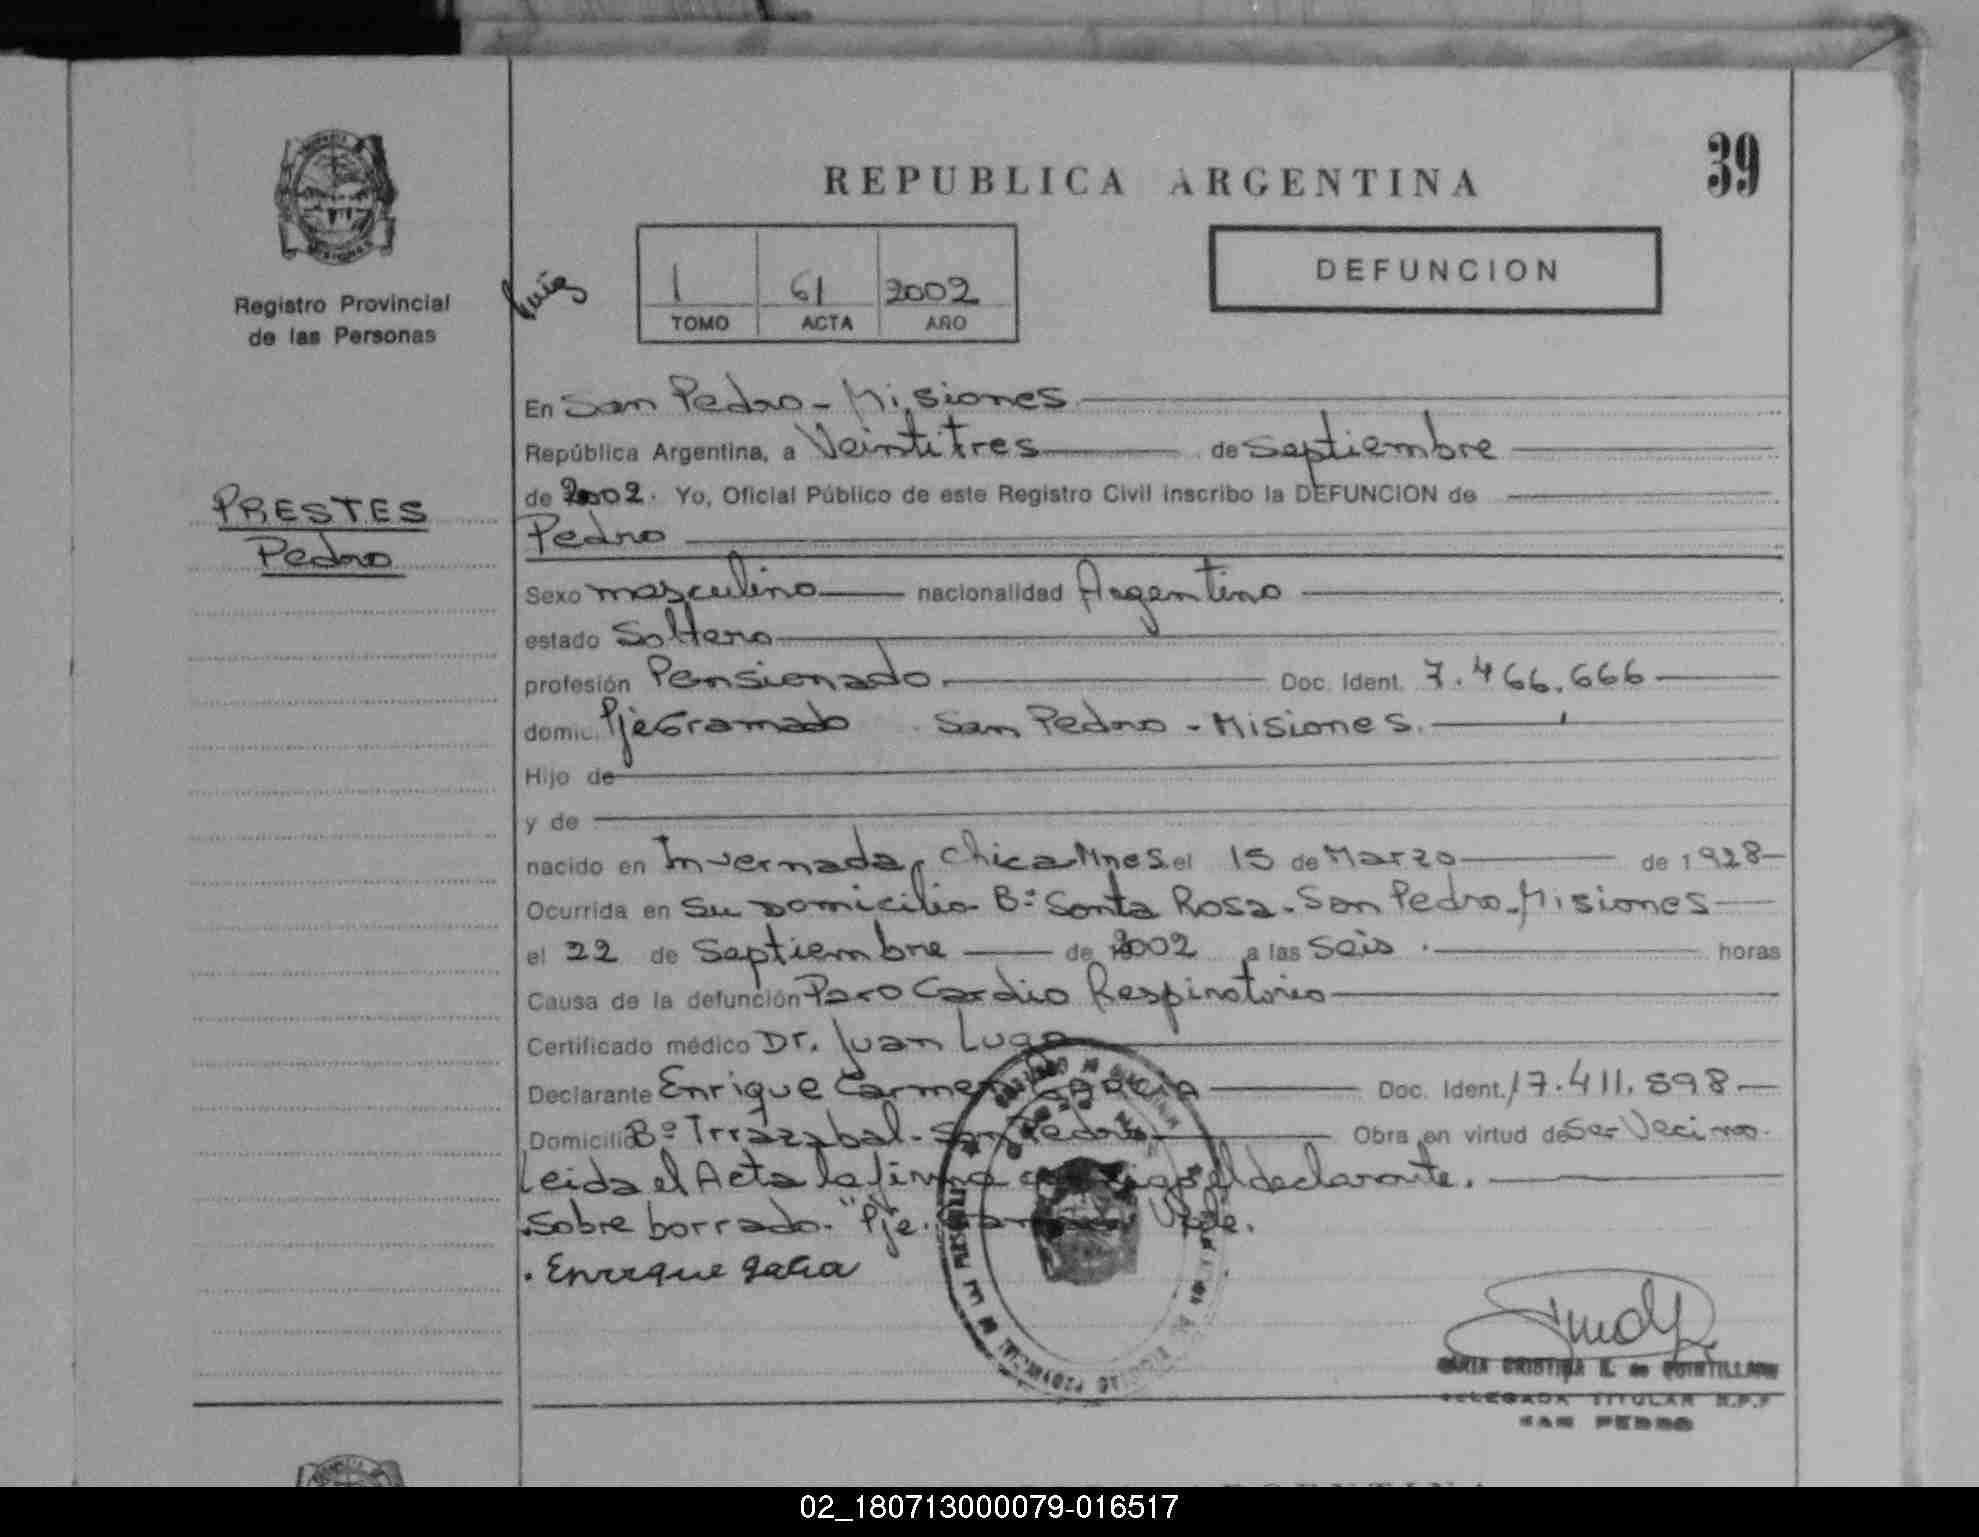 REPUBLICA ARGENTINA
39
Registro Provincial
de las Personas
1 61 2002
TOMO ACTA AÑO
DEFUNCION
PRESTES
Pedro
En San Pedro - Misiones
República Argentina, a Veintitres de Septiembre
de 2002. Yo, Oficial Público de este Registro Civil inscribo la DEFUNCION de
Pedro
Sexo masculino nacionalidad Argentino
estado Soltero
profesión Pensionado. Doc. Ident. 7.466.666
domic. Pje Gramado San Pedro - Misiones.
Hijo de
y de
nacido en Invernada, Chica Mnes el 15 de Marzo de 1928
Ocurrida en Su Domicilio B° Santa Rosa - San Pedro - Misiones
el 22 de Septiembre de 2002 a las Seis. horas
Causa de la defunción Paro Cardio Respiratorio
Certificado médico Dr. Juan Lugo
Declarante Enrique Doc. Ident. 17.411.898
Domicilio B° Irrazabal - San Pedro Obra en virtud de Ser Vecino.
Leida el Acta la firma el declarante.
Sobre borrado. "Pje. Vale.
Enrique
MARIA CRISTINA de QUINTILLAN
DELEGADA TITULAR R.P.P
SAN PEDRO
02_180713000079-016517